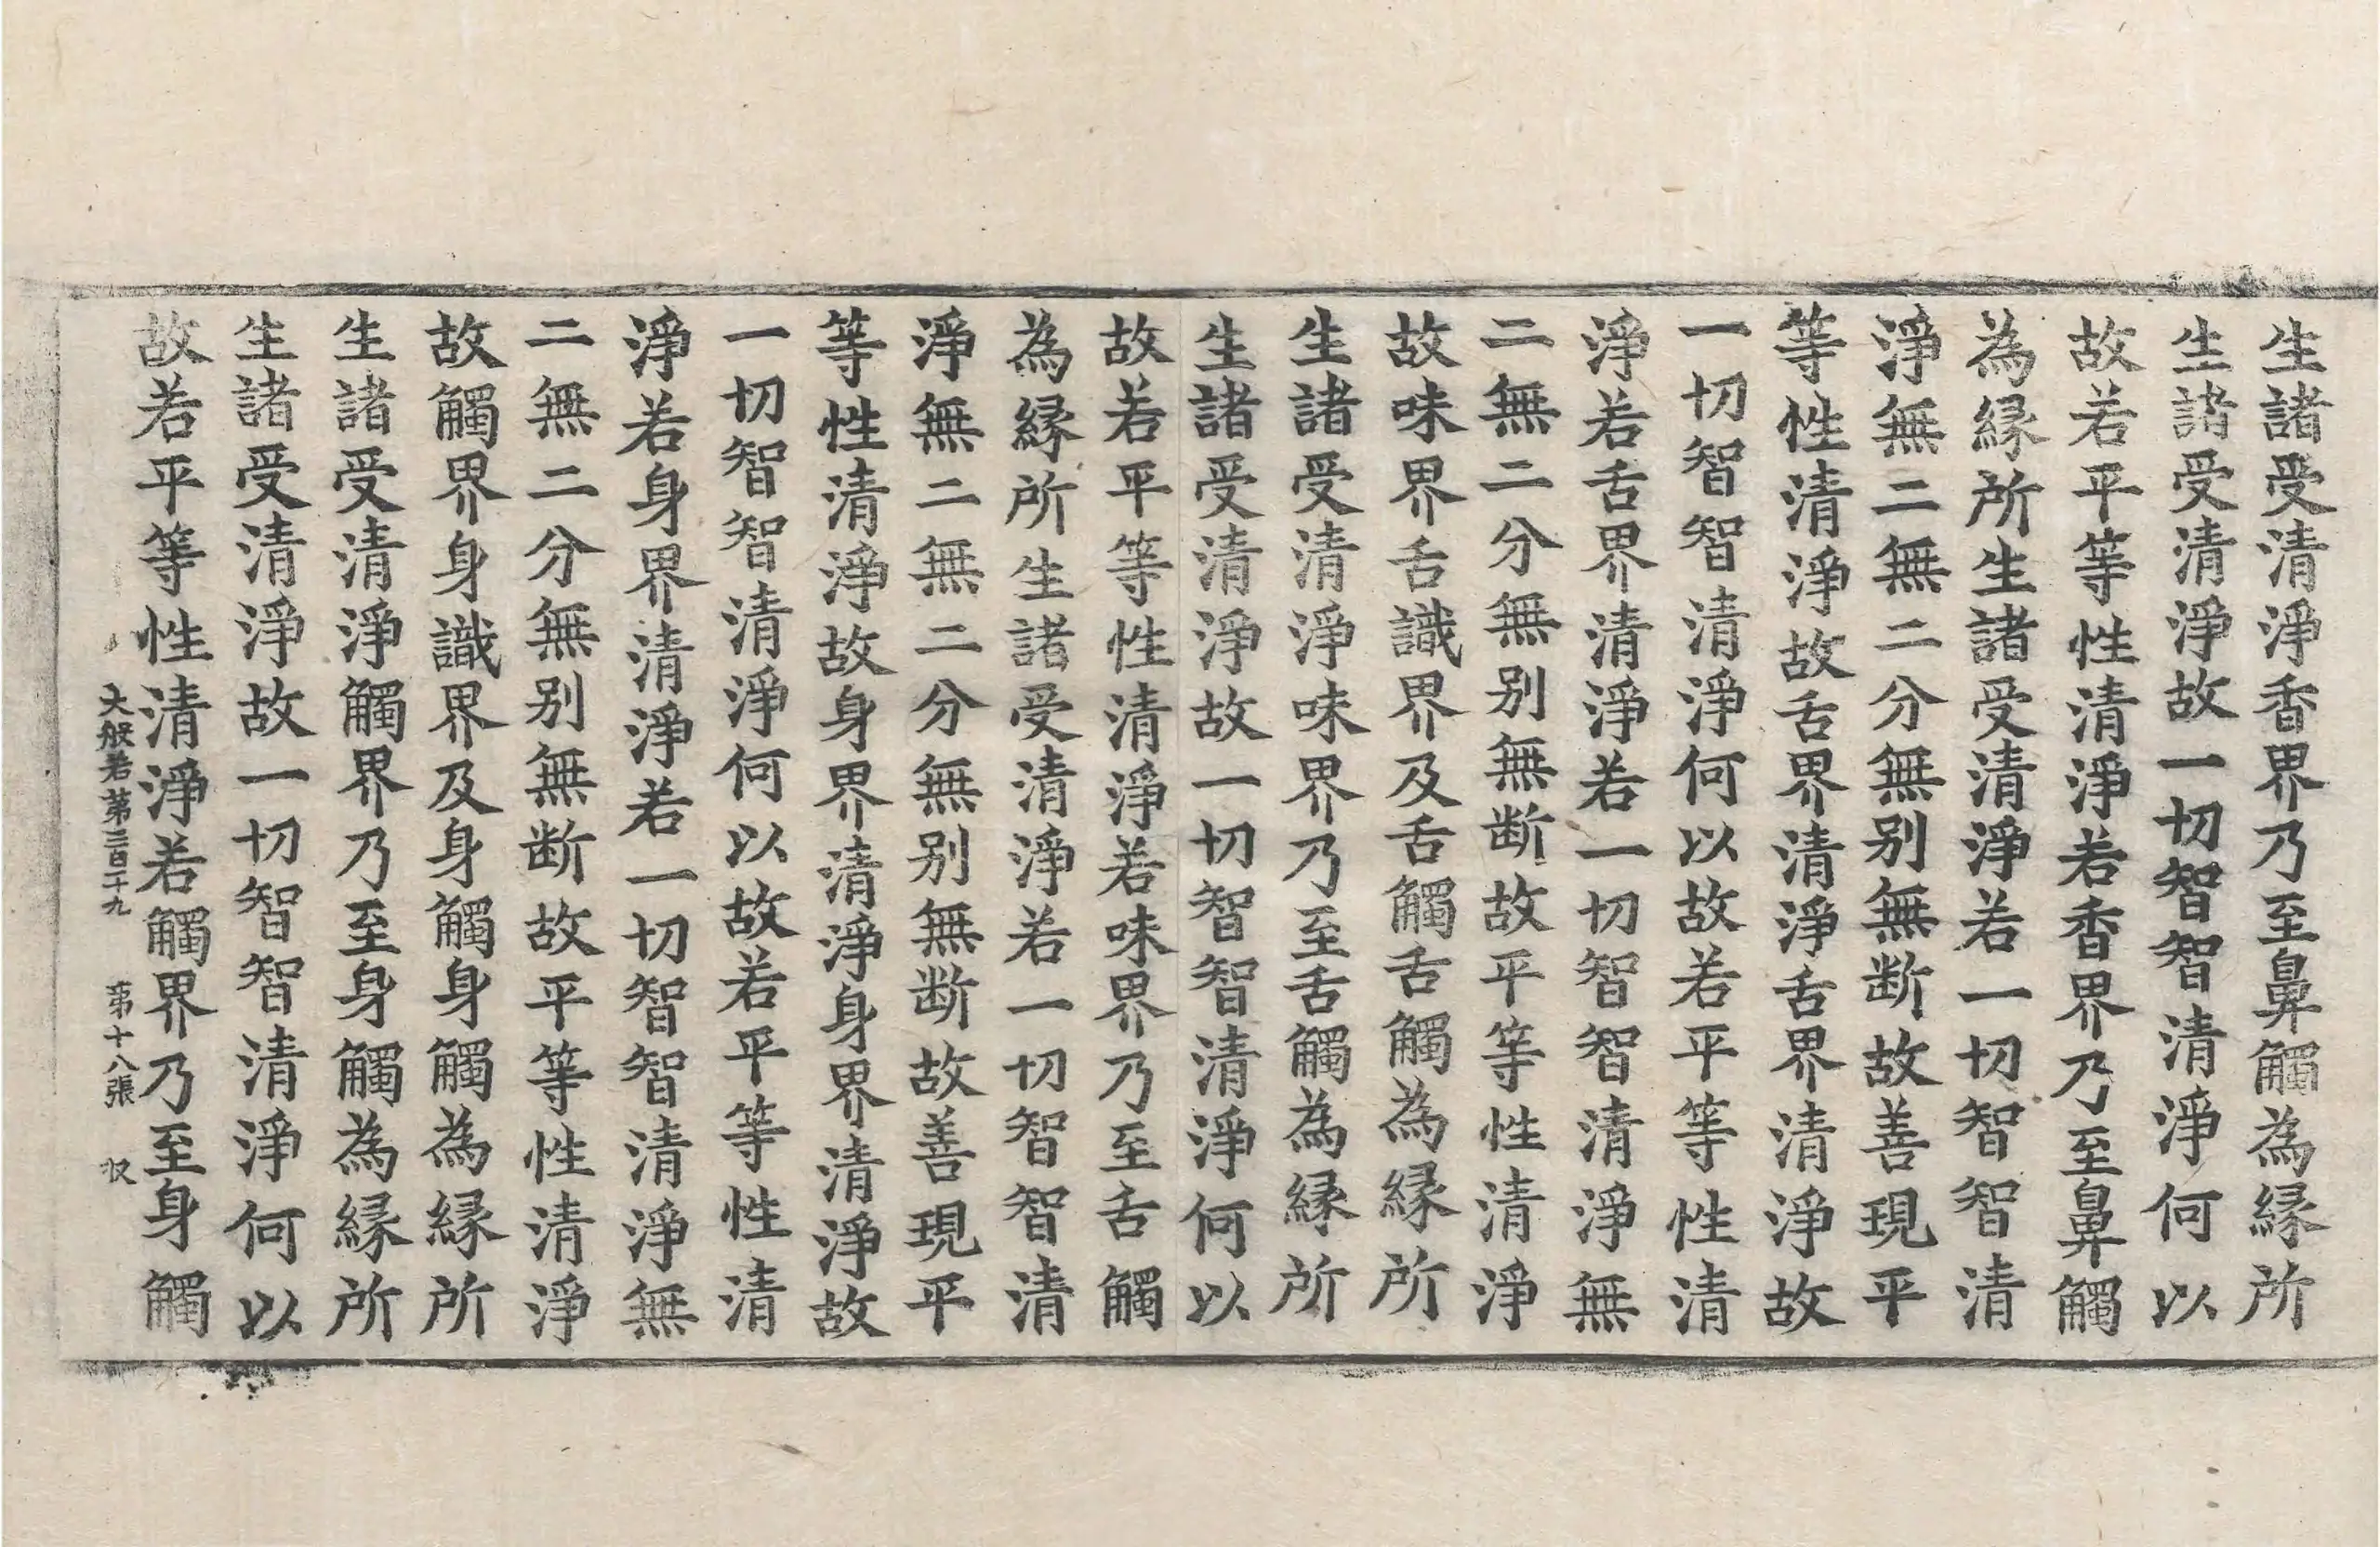 生諸受清淨香界乃至鼻觸為緣所
生諸受清淨故一切智智清淨何以
故若平等性清淨若香界乃至鼻觸
為緣所生諸受清淨若一切智智清
淨無二無二分無別無断故善現平
等性清淨故舌界清淨舌界清淨故
一切智智清淨何以故若平等性清
淨若舌界清淨若一切智智清淨無
二無二分無別無断故平等性清淨
故味界舌識界及舌觸舌觸為緣所
生諸受清淨味界乃至舌觸為緣所
生諸受清淨故一切智智清淨何以
故若平等性清淨若味界乃至舌觸
為緣所生諸受清淨若一切智智清
淨無二無二分無別無断故善現平
等性清淨故身界清淨身界清淨故
一切智智清淨何以故若平等性清
淨若身界清淨若一切智智清淨無
二無二分無別無断故平等性清淨
故觸界身識界及身觸身觸為緣所
生諸受清淨觸界乃至身觸為緣所
生諸受清淨故一切智智清淨何以
故若平等性清淨若觸界乃至身觸
大般若第二百二十九 第十八張